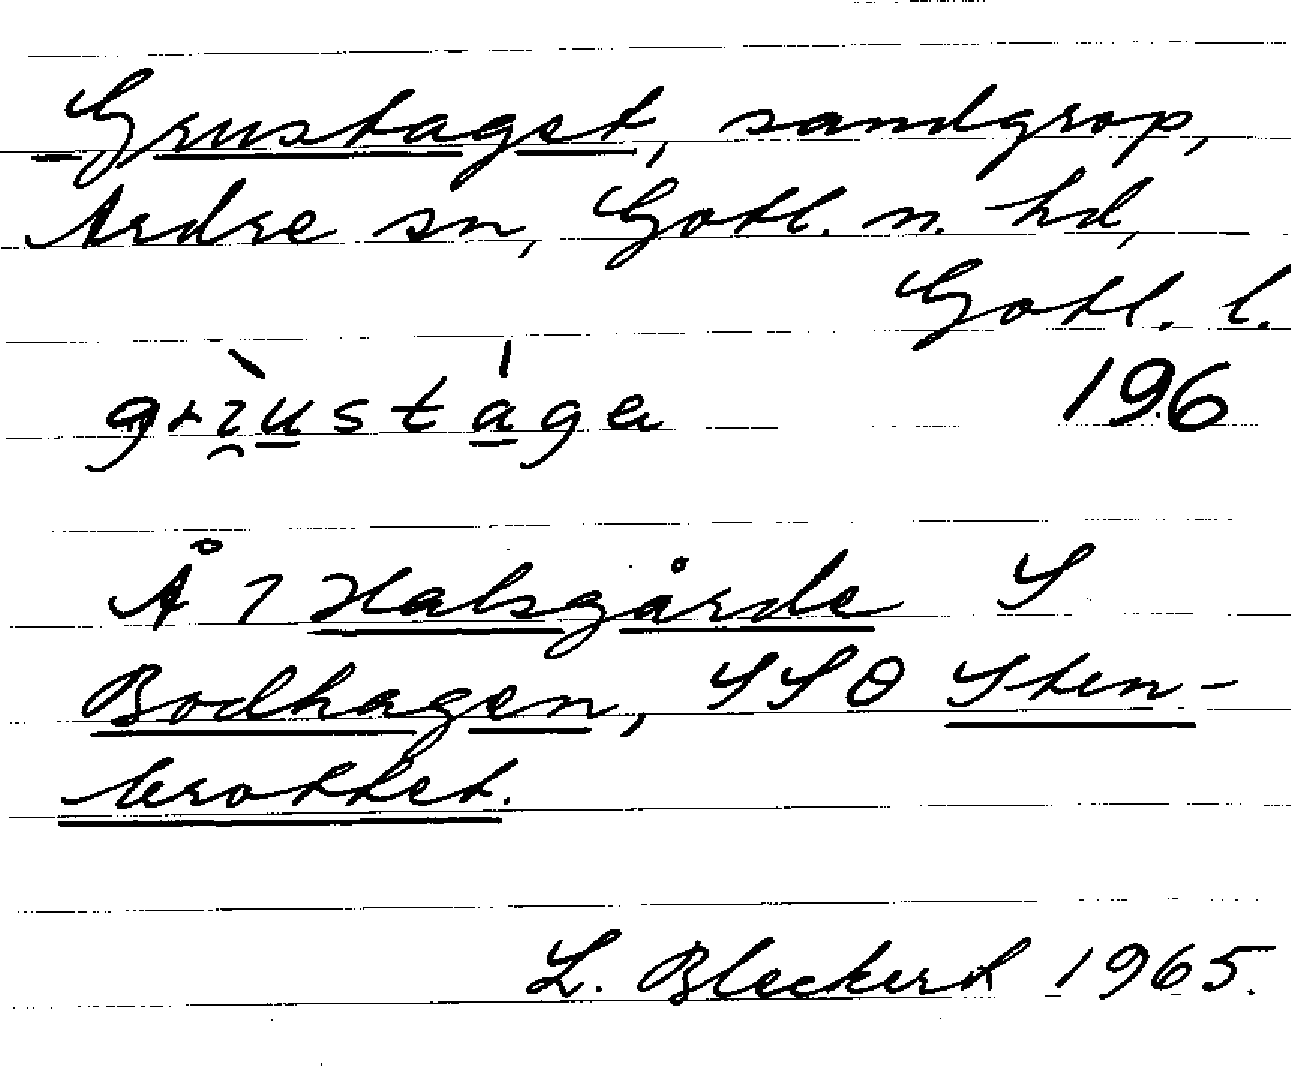 Grustaget, sandgrop,
Ardre sn, Gotl. n. hd,
Gotl. l.
196
Å 7 Halsgårde S
Bodhagen, SSO Sten-
brottet.
L. Bleckert 1965.